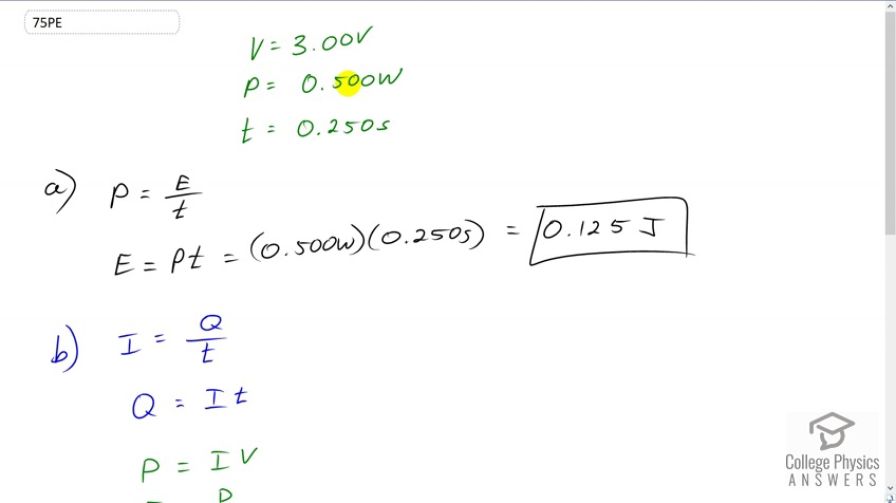 75PE
V = 3.00V
P = 0.500W
t = 0.250s
a) P = E/t
E = Pt = (0.500W)(0.250s) = 0.125 J
b) I = Q/t
Q = It
P = IV
P
College Physics
ANSWERS